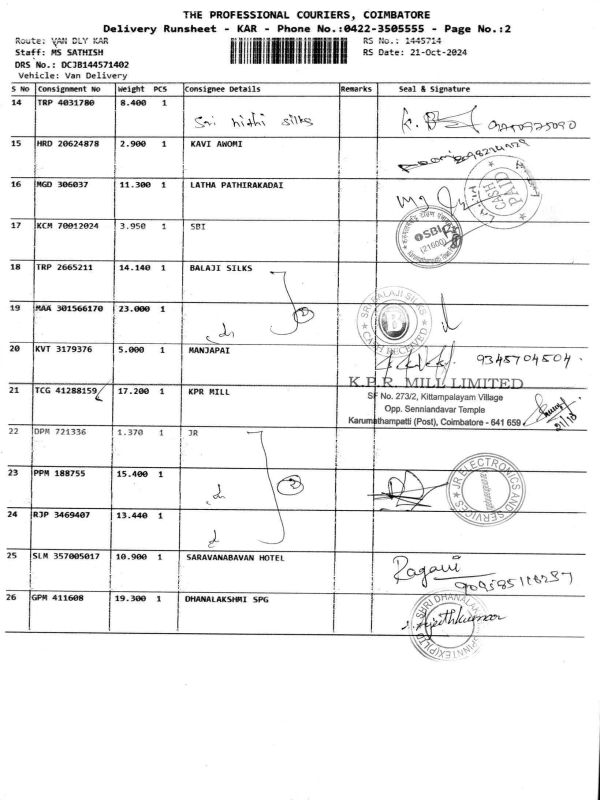 THE PROFESSIONAL COURIERS, COIMBATORE
Delivery Runsheet - KAR - Phone No.:0422-3505555 - Page No.:2
Route: VAN DLY KAR
RS No.: 1445714
Staff: MS SATHISH
RS Date: 21-Oct-2024
DRS No.: DCJB144571402
Vehicle: Van Delivery
S No Consignment No Weight PCS Consignee Details Remarks Seal & Signature
14 TRP 4031780 8.400 1 Sri hithi silks
15 HRD 20624878 2.900 1 KAVI AWOMI
16 MGD 306037 11.300 1 LATHA PATHIRAKADAI
CASH PAID
17 KCM 70012024 3.950 1 SBI
SBI
(21600)
18 TRP 2665211 14.140 1 BALAJI SILKS
2
19 MAA 301566170 23.000 1
SRI BALAJI SILKS
CASH RECEIVED
20 KVT 3179376 5.000 1 MANJAPAI
9345704504.
21 TCG 41288159 17.200 1 KPR MILL
K.P.R. MILL LIMITED
SF No. 273/2, Kittampalayam Village
Opp. Senniandavar Temple
Karumathampatti (Post), Coimbatore - 641 659
22 DPM 721336 1.370 1 JR
23 PPM 188755 15.400 1
2
JR ELECTRONICS AND SERVICES
24 RJP 3469407 13.440 1
25 SLM 357005017 10.900 1 SARAVANABAVAN HOTEL
Ragavi
26 GPM 411608 19.300 1 DHANALAKSHMI SPG